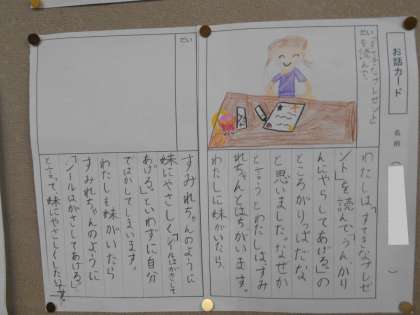 お話カード
名前 （　）
だい
すてきなプレゼント
を読んで
わたしは、「すてきなプレゼ
ント」を読んで、「うんかり
んにやらしてあげる」の
ところがりっぱだな
と思いました。なぜか
と言うとわたしは、すみ
れちゃんとはちがいます。
わたしに妹がいたら、
だい
すみれちゃんのように
妹にやさしく「シールはがさして
あげる。」といわずに自分
ではがしてしまいます。
わたしも妹がいたら
すみれちゃんのように
「シールはがさしてあげる」
と言って、妹にやさしくしたいです。